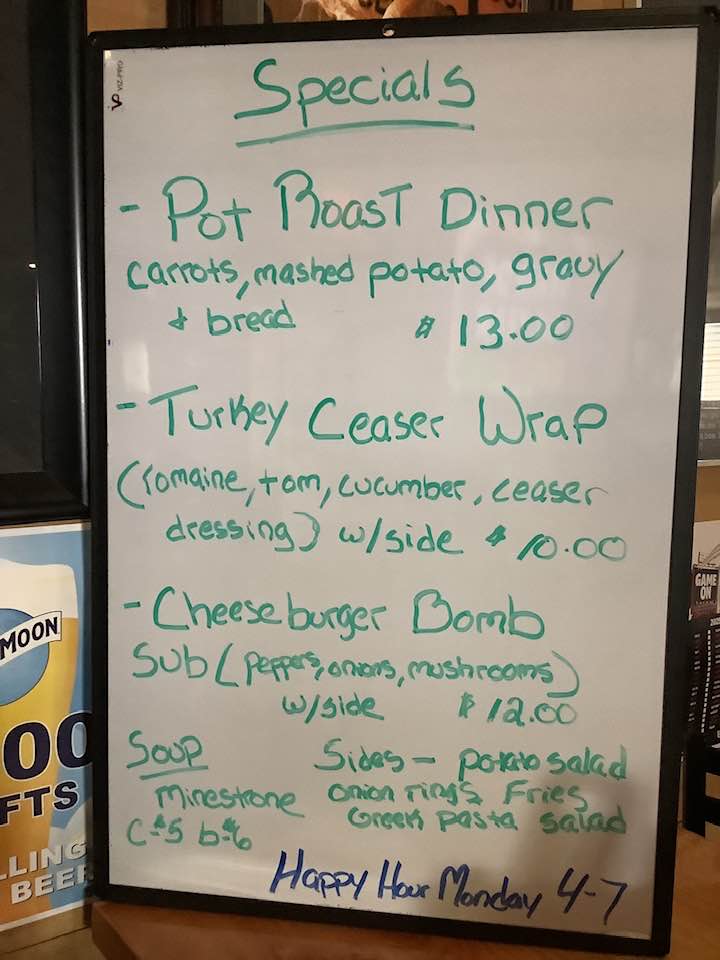 VIZ-PRO
Specials
- Pot Roast Dinner
carrots, mashed potato, gravy
+ bread $ 13.00
- Turkey Ceaser Wrap
(romaine, tom, cucumber, ceaser
dressing) w/side $ 10.00
- Cheeseburger Bomb
Sub (peppers, onions, mushrooms)
w/side $ 12.00
Soup
Minestrone
C-$5 b-$6
Sides - potato salad
onion rings Fries
Greek pasta salad
Happy Hour Monday 4-7
MOON
00
FTS
LLING
BEER
GAME
ON